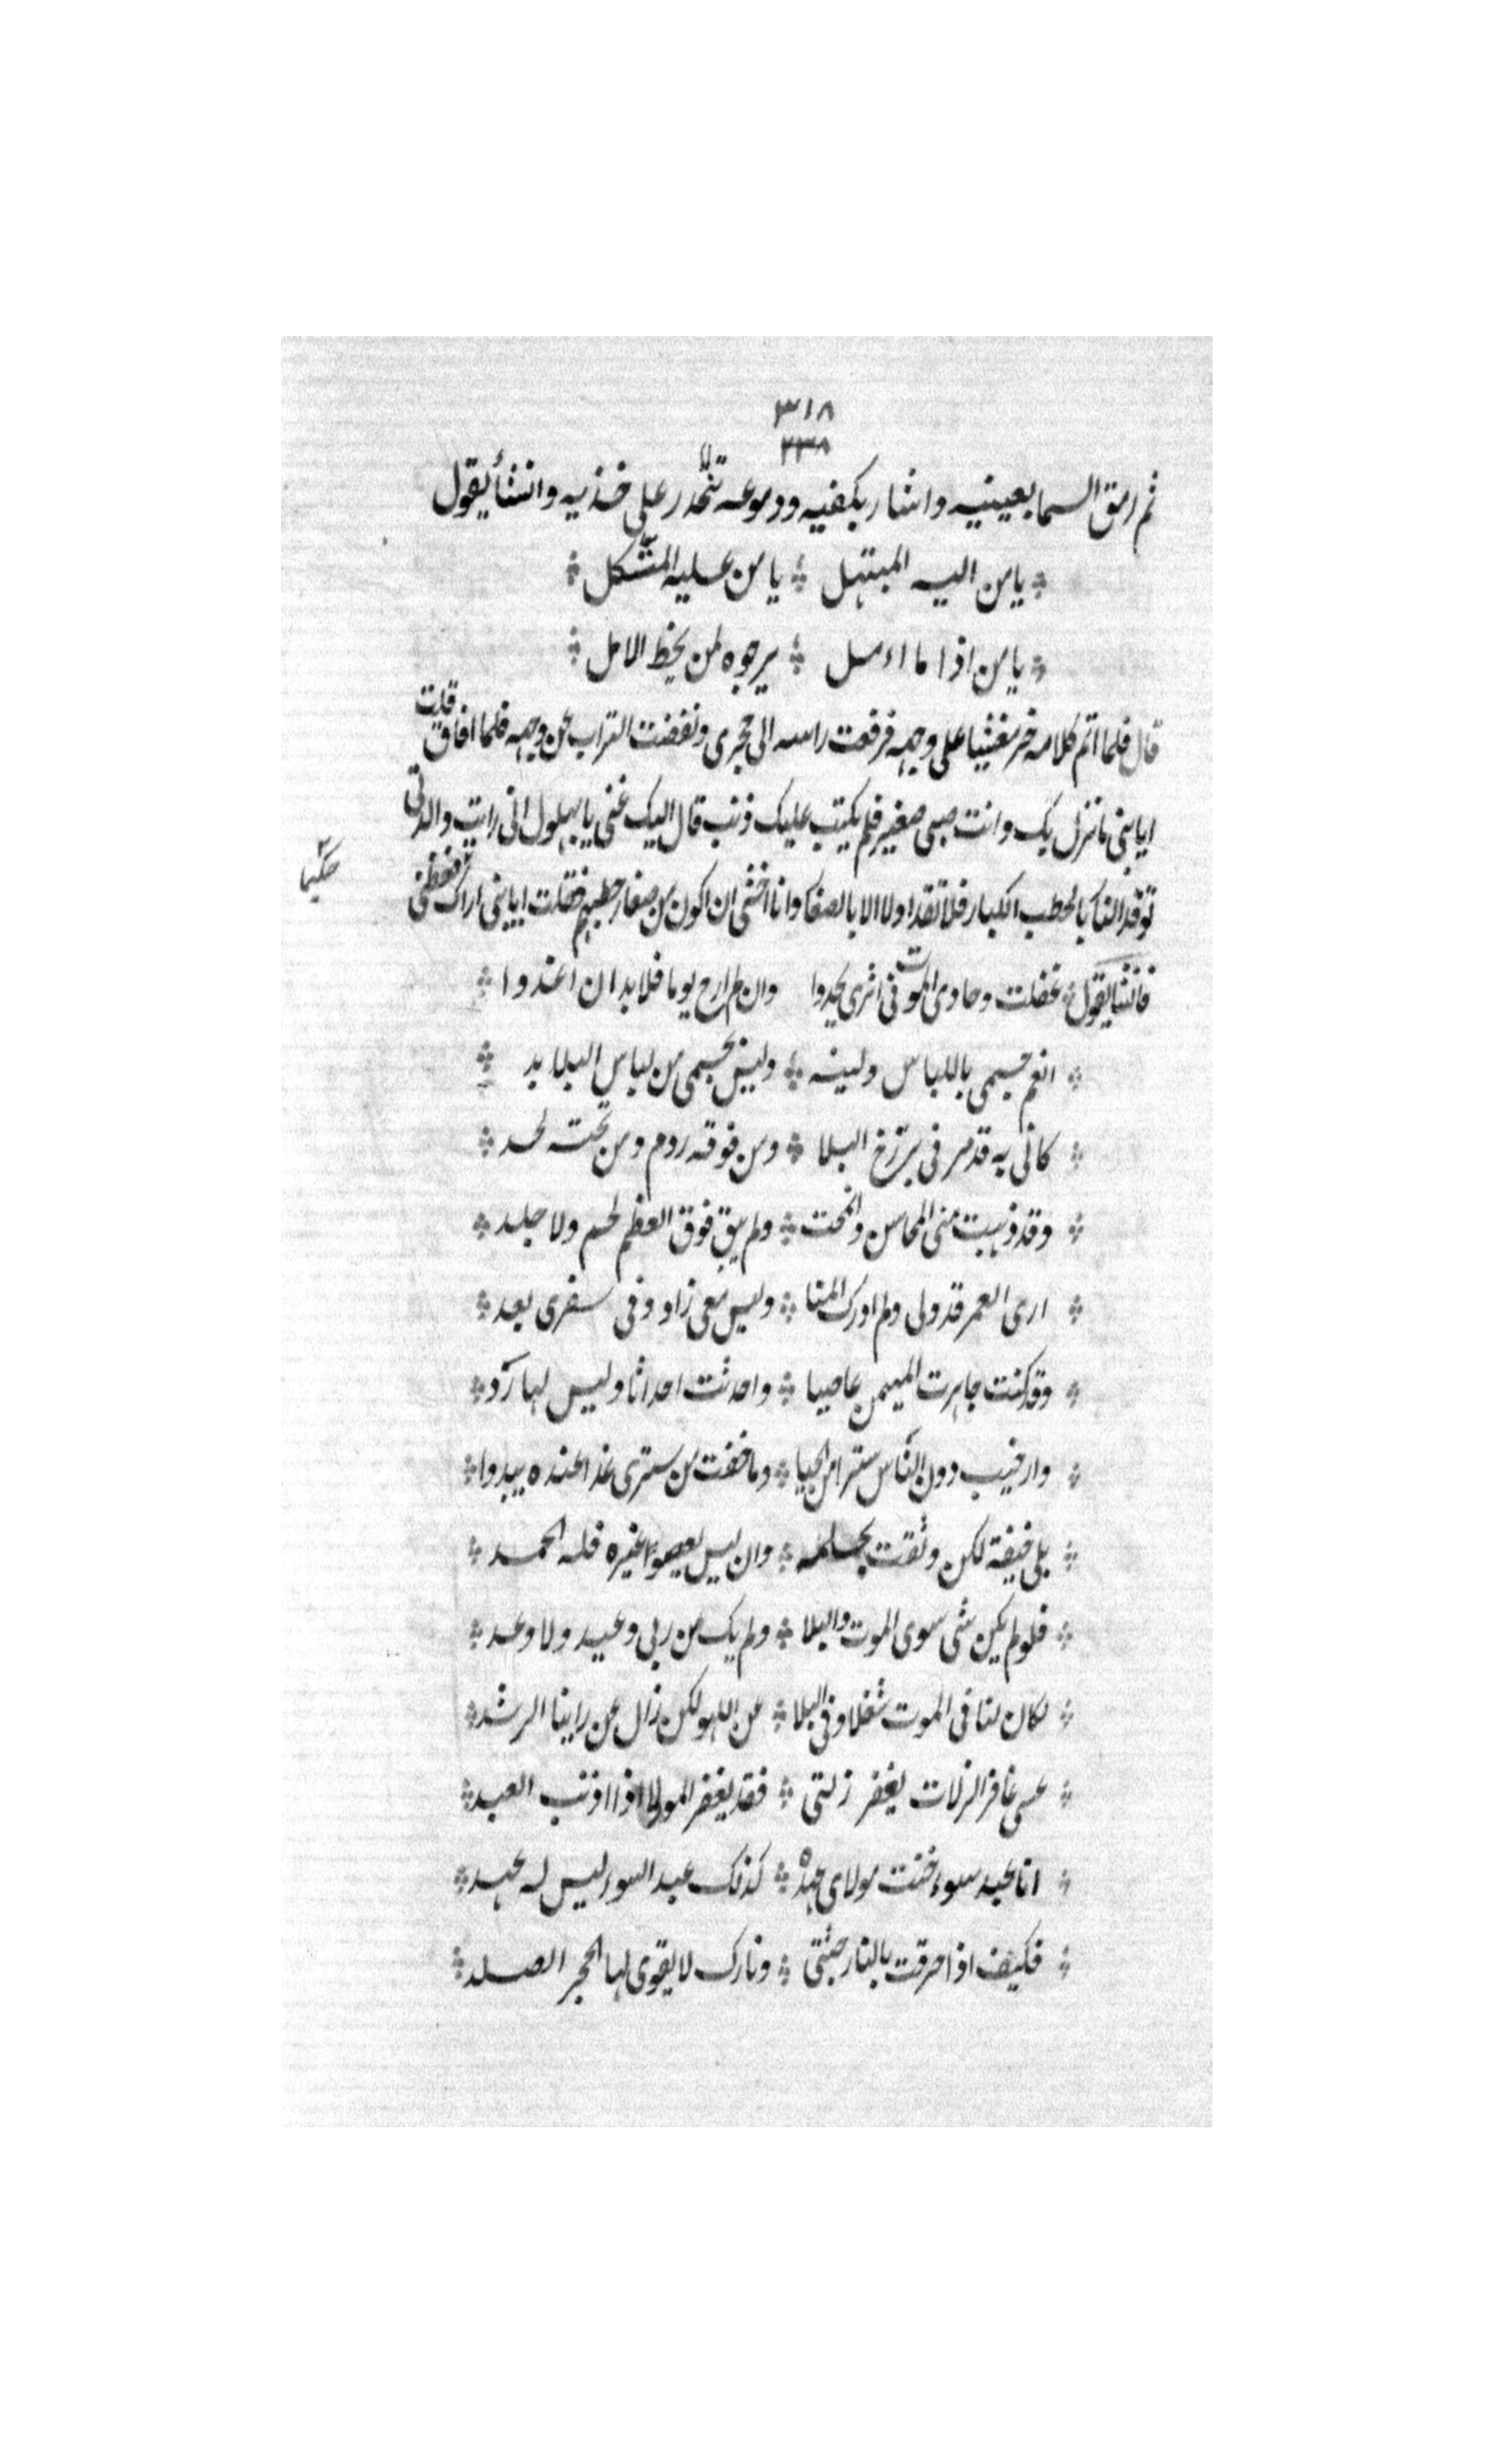 ٣١٨
٢٣٨
ثم رمق السما بعينيه واشار بكفيه ودموعه تتحدر على خديه وانشأ يقول
يا من اليه المبتهل ❖ يا من عليه المتكل ❖
يا من اذا ما امل ❖ يرجوه لمن يخط الامل ❖
قال فلما اتم كلامه خر مغشيا على وجهه فرفعت راسه الى حجرى ونفضت التراب عن وجهه فلما افاق قلت
ايا بنى ما نزل بك وانت صبى صغير فلم يكتب عليك ذنب قال اليك عنى يا بهلول انى رايت والدتى
توقد النار بالحطب الكبار فلا تقد اولا الا بالصغار وانا اخشى ان اكون من صغار حطبهم فقلت ايا بنى اراك فعظنى
حكيما
فانشأ يقول غفلت وحادى الموت فى اثرى يحدوا وان لم ارح يوما فلا بد ان اغدوا ❖
انعم جسمى باللباس ولينه ❖ وليس بجسمى من لباس البلا بد ❖
كانى به قد مر فى برزخ البلا ❖ ومن فوقه ردم ومن تحته لحد ❖
وقد ذهبت منى المحاسن وانمحت ❖ ولم يبق فوق العظم لحم ولا جلد ❖
ارى العمر قد ولى ولم ادرك المنا ❖ وليس معى زاد وفى سفرى بعد ❖
وقد كنت جاهرت المهيمن عاصيا ❖ واحدثت احداثا وليس لها رد ❖
وارخيت دون الناس سترا من الحيا ❖ وما خفت من سترى غدا عنده يبدوا ❖
بلى خيفة لكن وثقت بحلمه ❖ وان ليس يعصوا غيره فله الحمد ❖
فلو لم يكن شى سوى الموت والبلا ❖ ولم يك من ربى وعيد ولا وعد ❖
لكان لنا فى الموت شغلا وفى البلا ❖ عن اللهو لكن زال عن راينا الرشد ❖
عسى غافر الزلات يغفر زلتى ❖ فقد يغفر المولا اذا اذنب العبد ❖
انا عبد سوء خنت مولاى عهده ❖ كذلك عبد السوء ليس له عهد ❖
فكيف اذا احرقت بالنار جثتى ❖ ونارك لا يقوى لها الحجر الصلد ❖